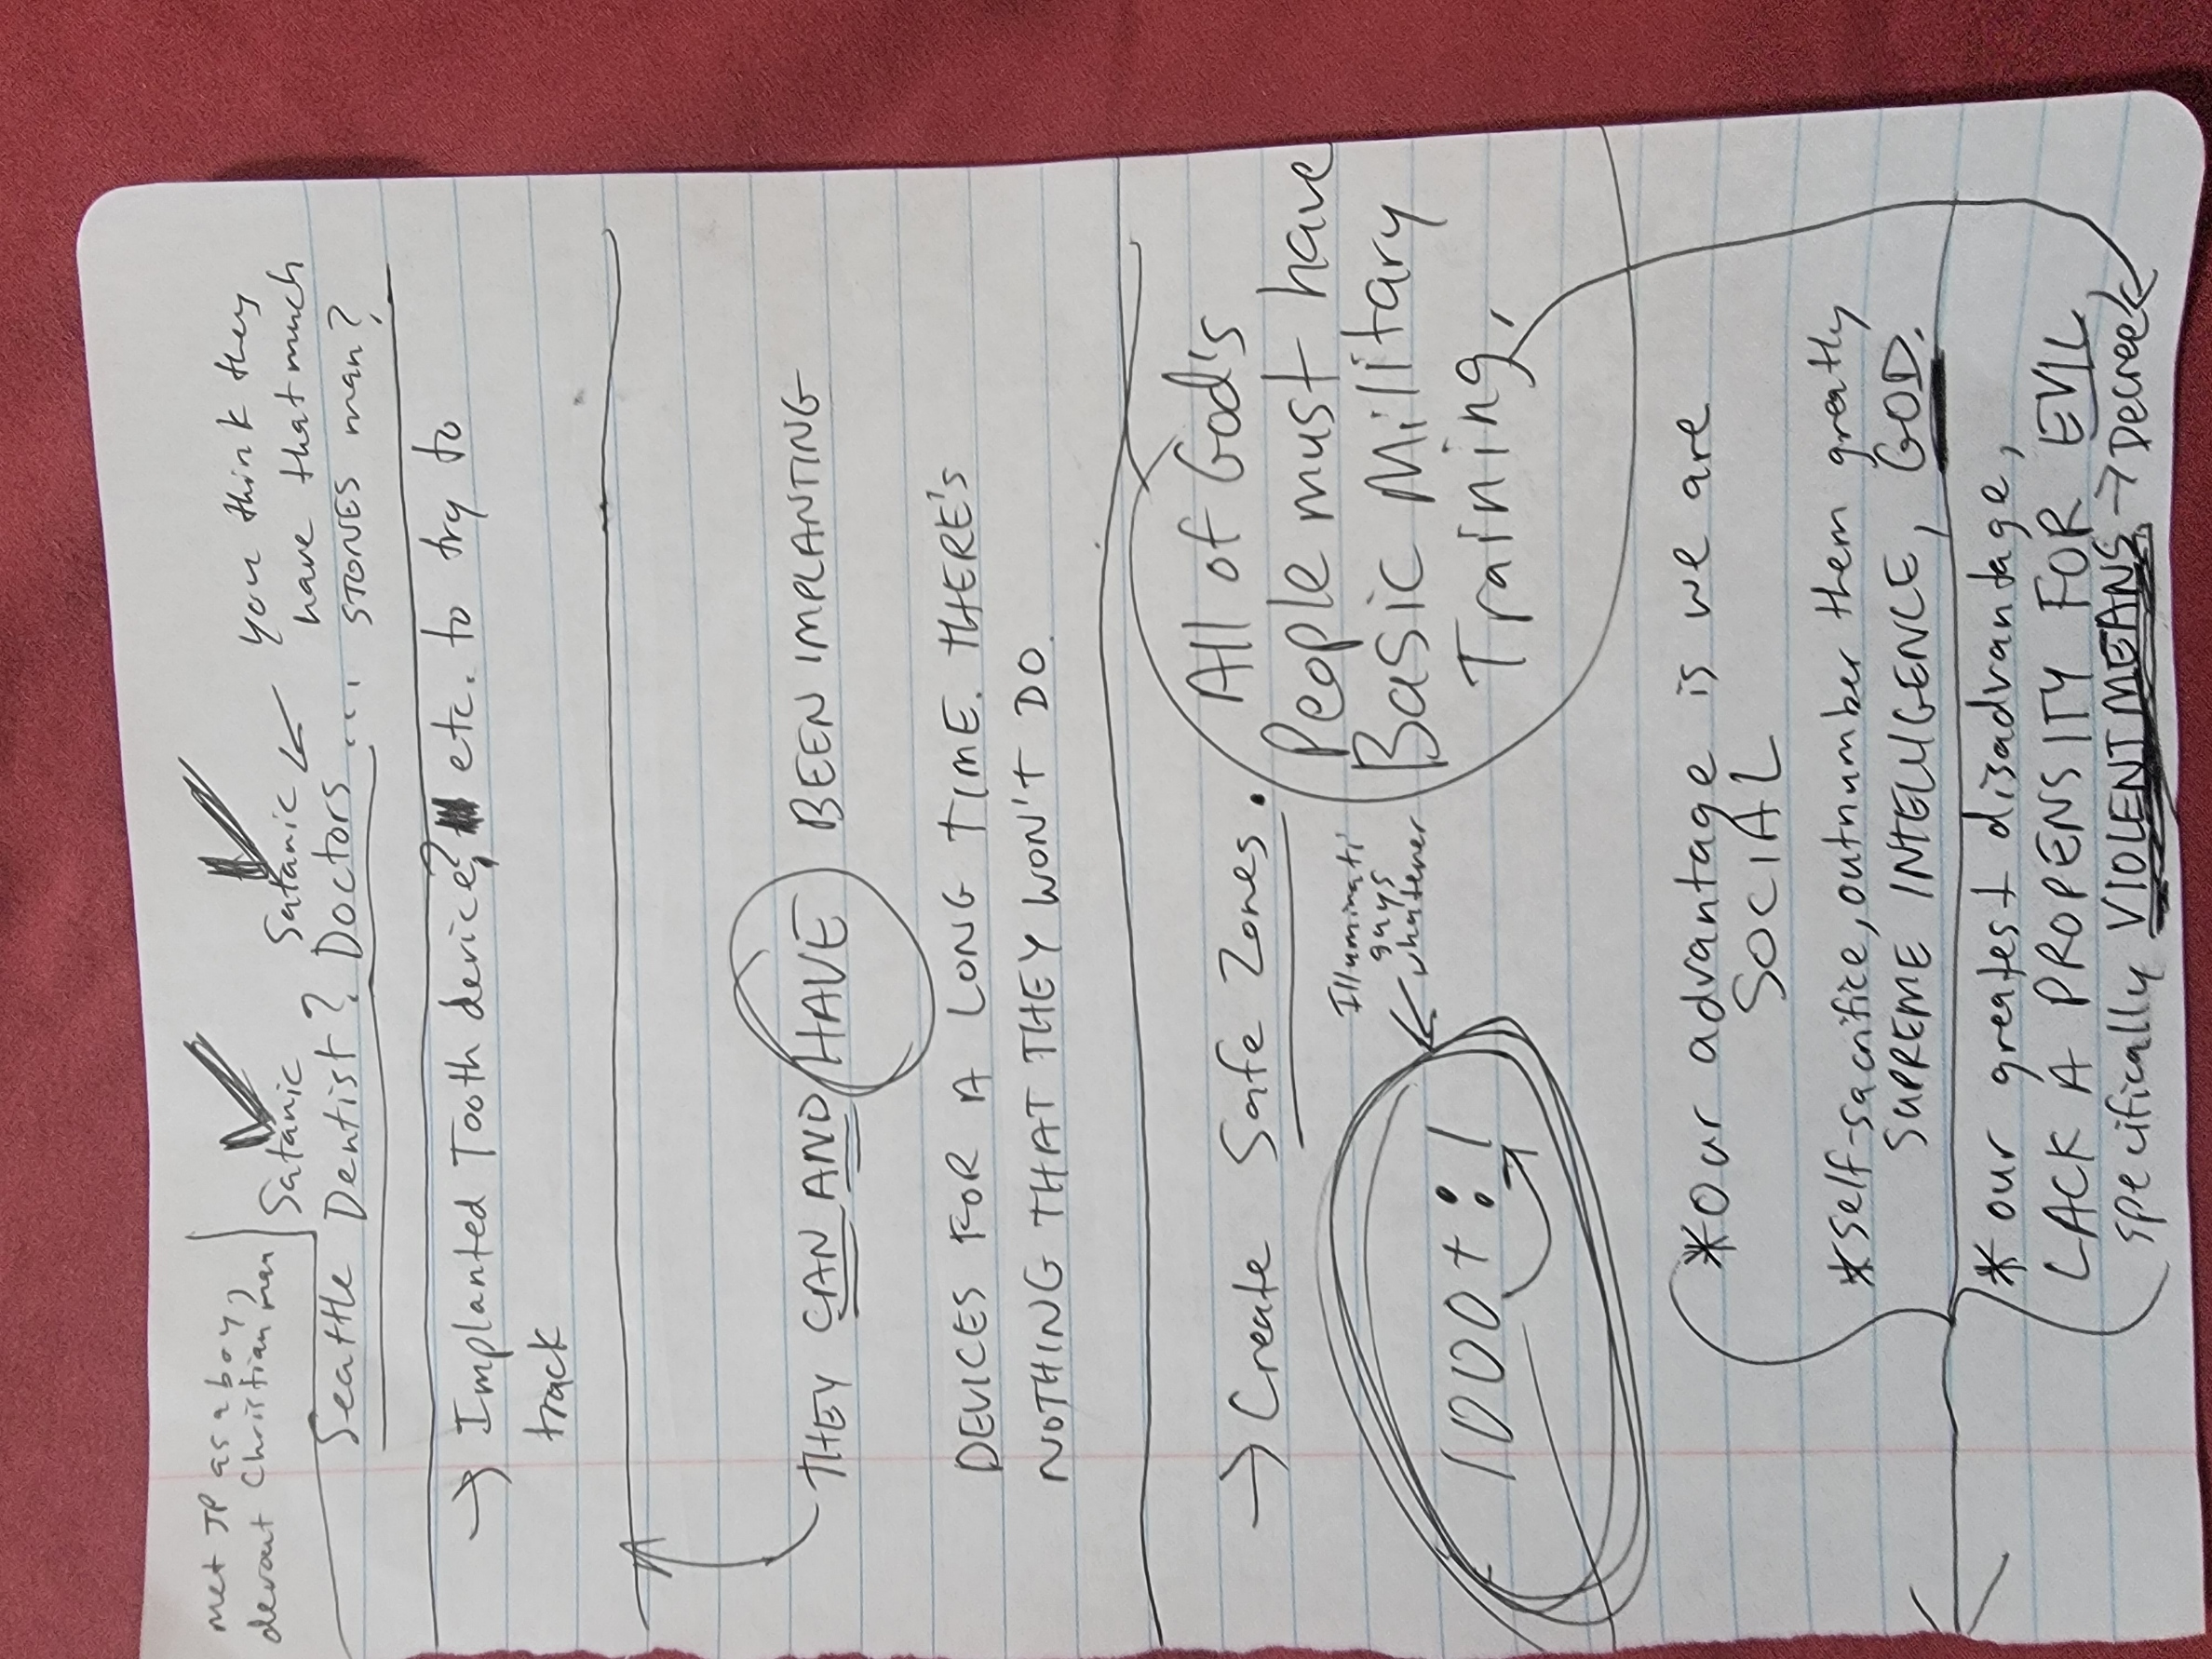 met JP as a boy,
devout Christian man
Satanic Satanic
Seattle Dentist? Doctors...
you think they
have that much
STONES man?
→ Implanted Tooth device?, etc. to try to
track
THEY CAN AND HAVE BEEN IMPLANTING
DEVICES FOR A LONG TIME. THERE'S
NOTHING THAT THEY WON'T DO.
→ Create Safe Zones.
All of God's
People must have
Basic Military
Training,
Illuminati
guys
whatever
1000+:1
*Our advantage is we are
SOCIAL
*Self-sacrifice, outnumber them greatly
SUPREME INTELLIGENCE, GOD.
*our greatest disadvantage,
LACK A PROPENSITY FOR EVIL,
specifically VIOLENT MEANS → Decree